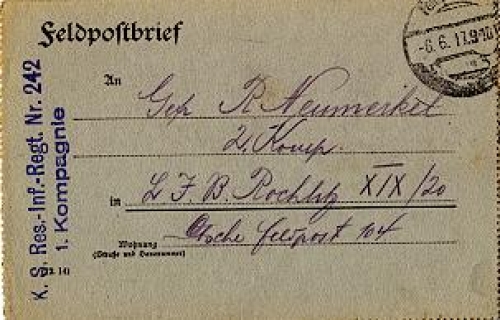 Feldpostbrief
-6.6.17.9-10
An
Gef. R. Neumerkel
2. Komp.
in L. J. B. Rochlitz XIX/20
Deutsche Feldpost 104
Wohnung
(Straße und Hausnummer)
K. S. Res.-Inf.-Regt. Nr. 242
1. Kompagnie